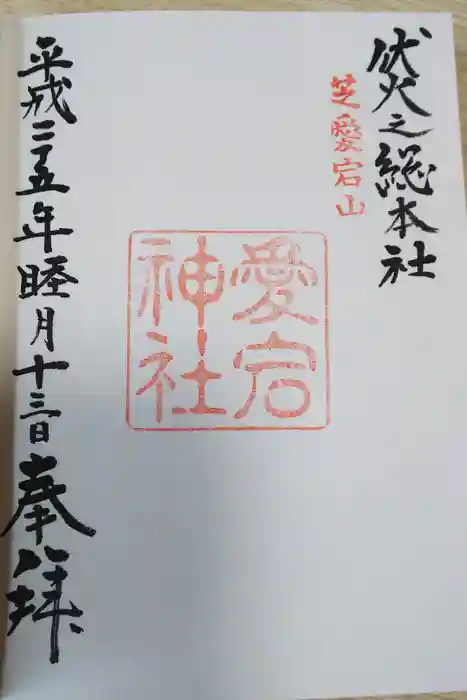 伏火之総本社
芝愛宕山
愛宕
神社
平成二十五年睦月十三日 奉拝